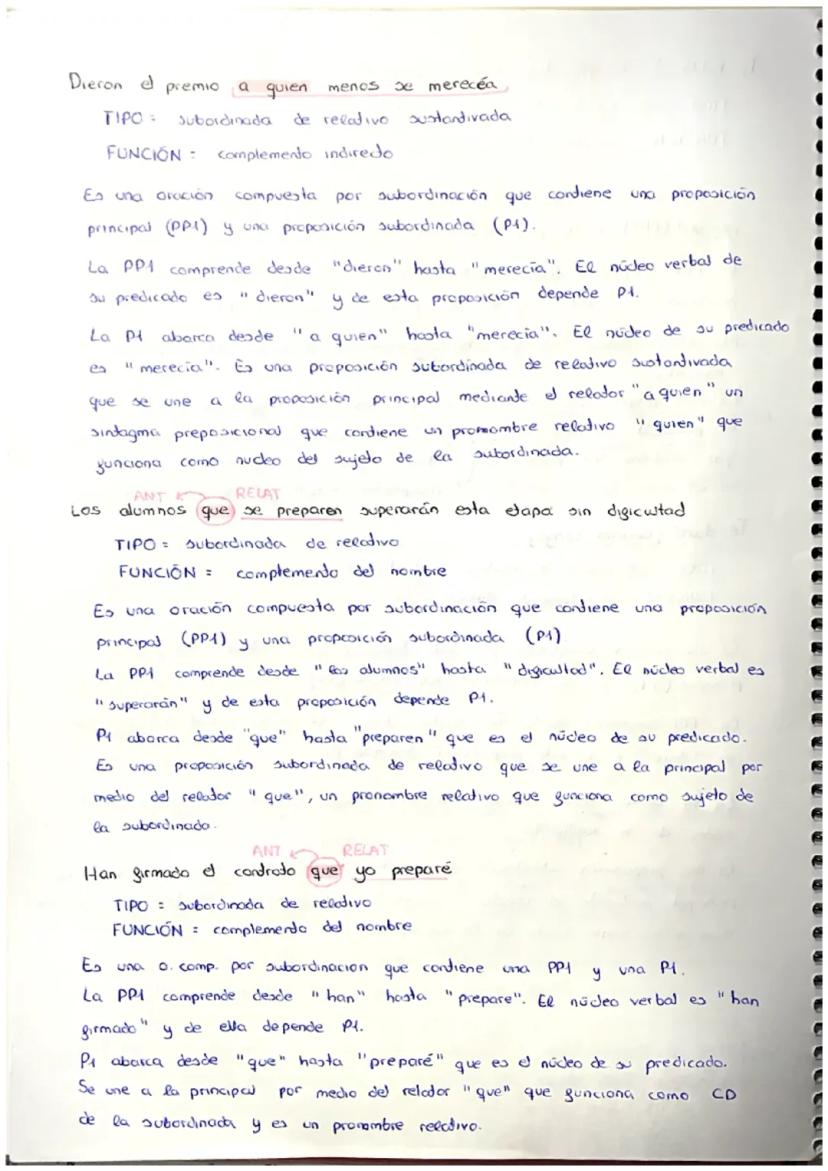 Dieron el premio a quien menos se merecía
TIPO: subordinada de relativo sustantivada
FUNCIÓN: complemento indirecto
Es una oración compuesta por subordinación que contiene una proposición
principal (PP1) y una proposición subordinada (P1).
La PP1 comprende desde "dieron" hasta "merecía". El núcleo verbal de
su predicado es "dieron" y de esta proposición depende P1.
La P1 abarca desde "a quien" hasta "merecía". El núcleo de su predicado
es "merecía". Es una proposición subordinada de relativo sustantivada
que se une a la proposición principal mediante el relator "a quien" un
sintagma preposicional que contiene un pronombre relativo "quien" que
funciona como nucleo del sujeto de la subordinada.
ANT RELAT
Los alumnos que se preparen superarán esta etapa sin dificultad
TIPO = subordinada de relativo
FUNCIÓN = complemento del nombre
Es una oración compuesta por subordinación que contiene una proposición
principal (PP1) y una proposición subordinada (P1)
La PP1 comprende desde "los alumnos" hasta "dificultad". El núcleo verbal es
"superarán" y de esta proposición depende P1.
P1 abarca desde "que" hasta "preparen" que es el núcleo de su predicado.
Es una proposición subordinada de relativo que se une a la principal por
medio del relator "que", un pronombre relativo que funciona como sujeto de
la subordinada.
ANT RELAT
Han firmado el contrato que yo preparé
TIPO = subordinada de relativo
FUNCIÓN = complemento del nombre
Es una o. comp. por subordinacion que contiene una PP1 y una P1.
La PP1 comprende desde "han" hasta "prepare". El núcleo verbal es "han
firmado" y de ella depende P1.
P1 abarca desde "que" hasta "preparé" que es el núcleo de su predicado.
Se une a la principal por medio del relator "que" que funciona como CD
de la subordinada y es un pronombre relativo.